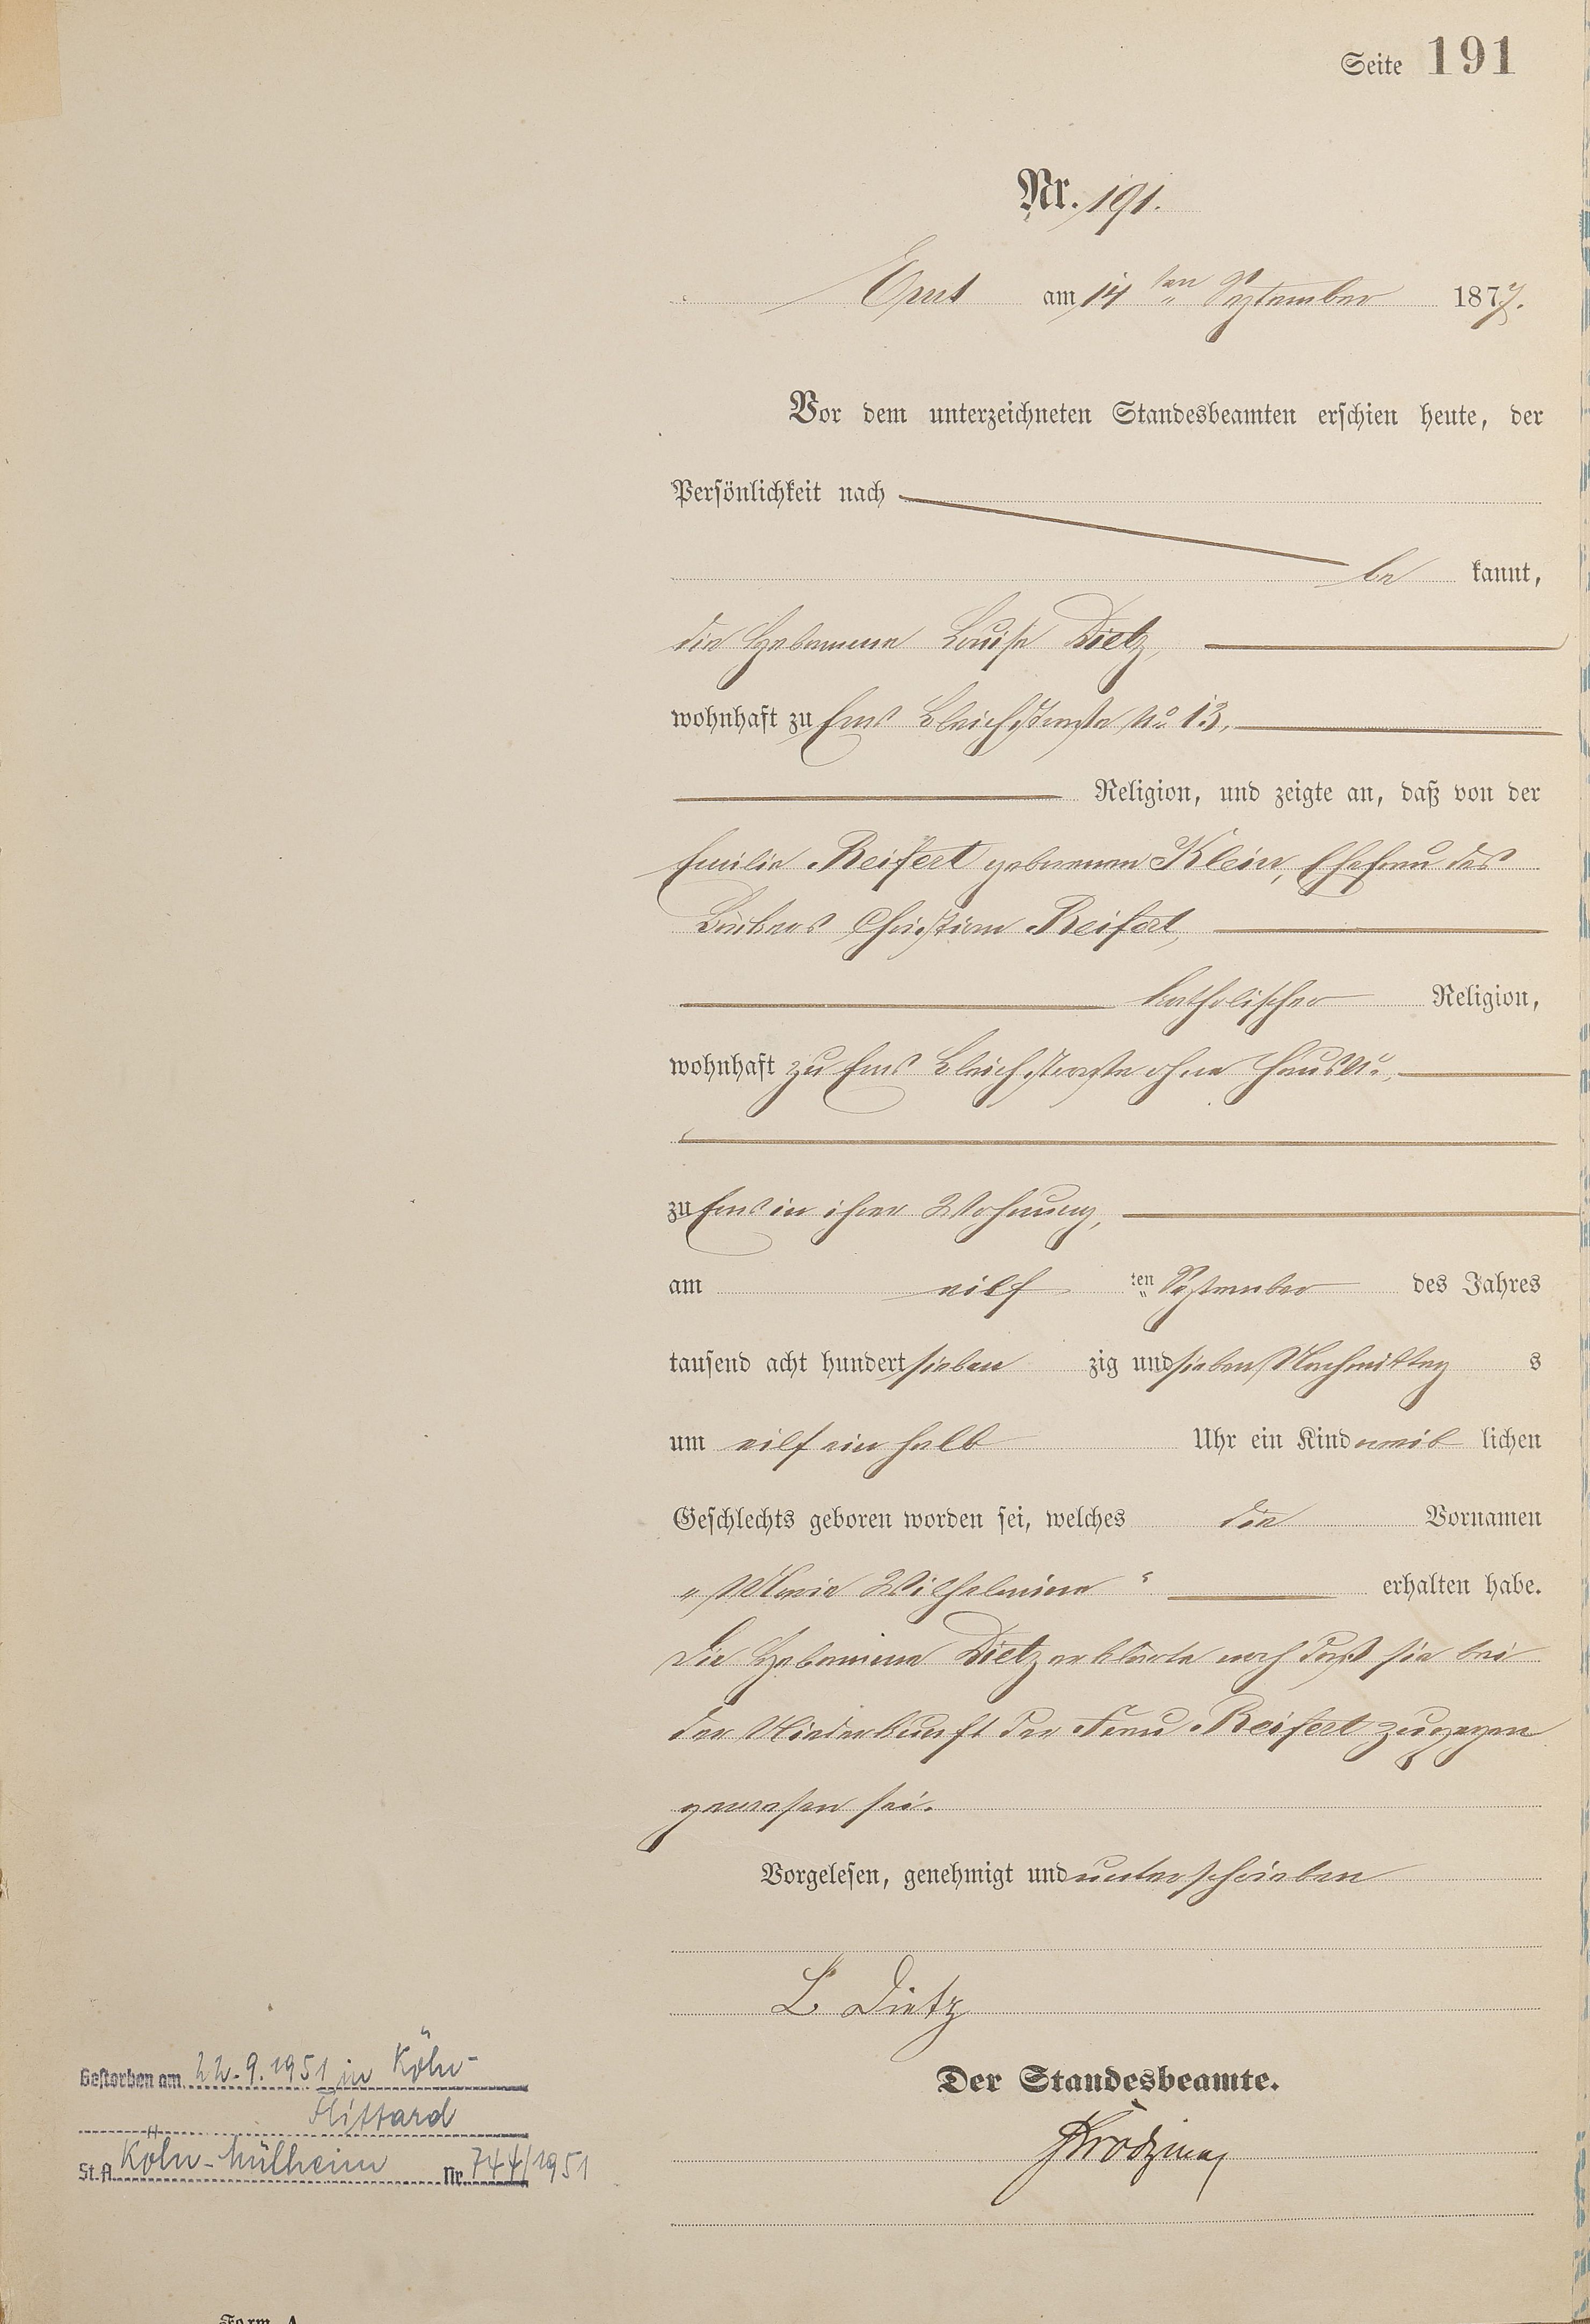 Seite 191
Nr. 191.
Ems am 14 ten September 1877.
Vor dem unterzeichneten Standesbeamten erschien heute, der
Persönlichkeit nach
be kannt,
die Hebamme Louise Dietz,
wohnhaft zu Ems Bleichstraße No 13,
Religion, und zeigte an, daß von der
Emilie Reifert geborenen Klein, Ehefrau des
Bäckers Christian Reifert,
katholischer Religion,
wohnhaft zu Ems Bleichstraße ohne Haus No,
zu Ems in ihrer Wohnung,
am eilf ten September des Jahres
tausend acht hundert sieben zig und sieben Nachmittag s
um eilf ein halb Uhr ein Kind weib lichen
Geschlechts geboren worden sei, welches die Vornamen
„Maria Wilhelmine“ erhalten habe.
Die Hebamme Dietz erklärte noch daß sie bei
der Niederkunft der Frau Reifert zugegen
gewesen sei.
Vorgelesen, genehmigt und unterschrieben
L. Dietz
Der Standesbeamte.
Gestorben am 22.9.1951 in Köln-
Flittard
St.A. Köln-Mülheim Nr. 744/1951
Form. A